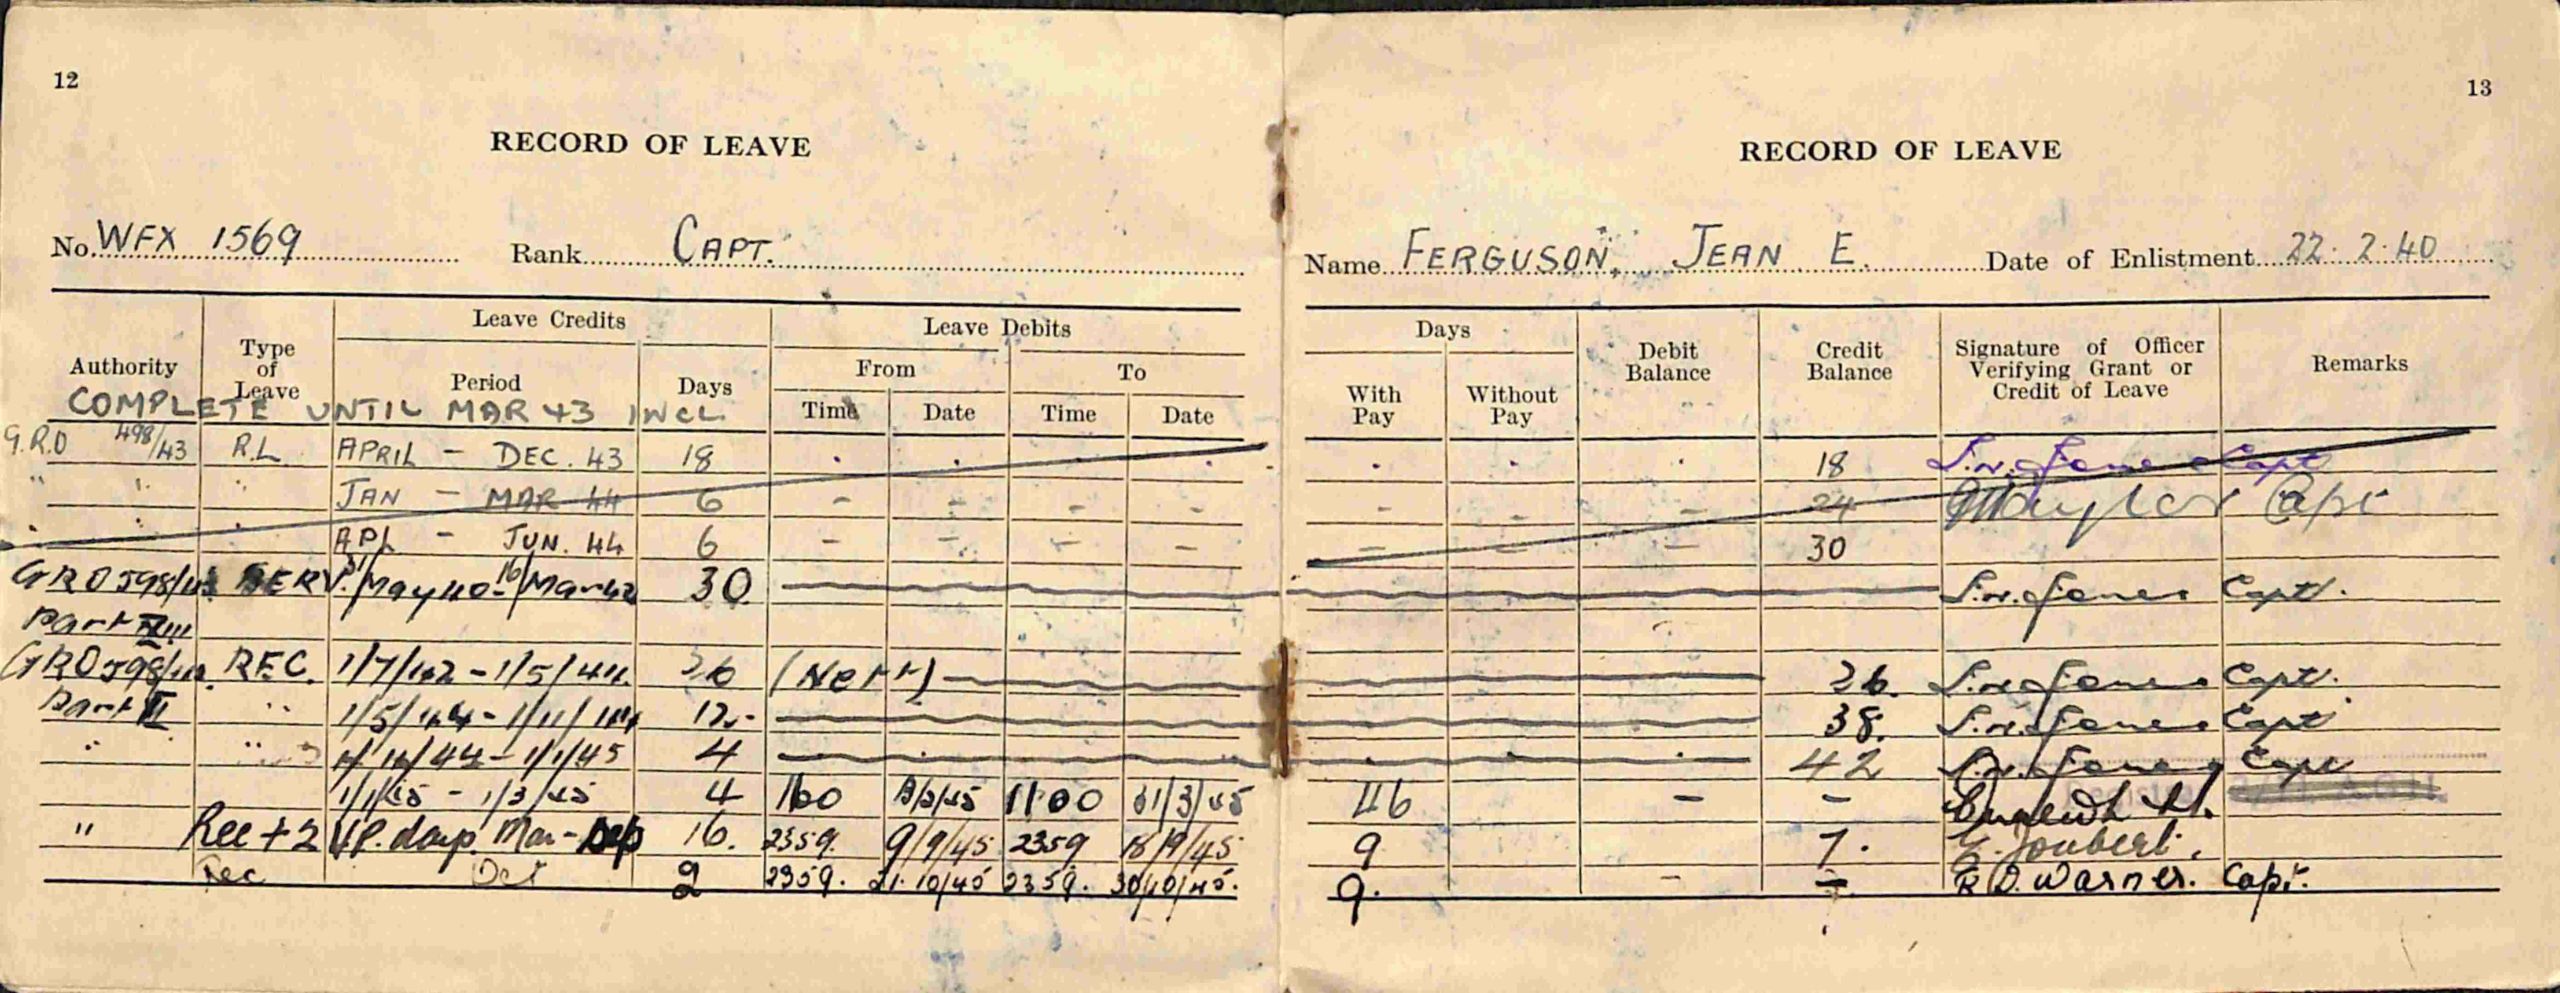 12
RECORD OF LEAVE
No. WFX 1569 Rank CAPT.
Authority Type of Leave Leave Credits Leave Debits
Period Days From To
Time Date Time Date
COMPLETE UNTIL MAR 43 INCL.
G.R.O 498/43 R.L APRIL - DEC. 43 18
" " " JAN - MAR 44 6 - - - -
" " " APL - JUN. 44 6 - - - -
GRO SERV. May 40 - 16/Mar 42 30
Part
GRO REC. 1/7/42 - 1/5/44 26 (Nett)
Part II " 1/5/44 - 1/11/44 12
" " 1/11/44 - 1/1/45 4
1/1/45 - 1/3/45 4 1100 31/3/45
" Rec + 2 V.P. days Mar - Sep 16. 2359. 9/9/45 2359 18/9/45
Rec Oct 2 2359. 21.10/45 2359. 30/10/45.
13
RECORD OF LEAVE
Name FERGUSON, JEAN E. Date of Enlistment 22.2.40
Days Debit Balance Credit Balance Signature of Officer Verifying Grant or Credit of Leave Remarks
With Pay Without Pay
18 Capt
- - - 24 Capt
- - - 30
Capt.
26. Capt.
38. Capt
42 Capt
46 - -
9 7. Joubert.
9. - - R D. Warner. Capt.